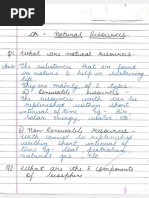 Ch - Natural Resources
Q1 What are natural resources
Ans The substances that are found
in nature & help in sustaining
life
They are mainly of 2 types-
a) Renewable resources
The resources with can be
replenished within short
interval of time Eg-
Solar power
b) Non Renewable resources
cannot be replenished
within short interval of
time Eg- Coal, petroleum
natural gas etc
Q2 What are the 3 components
of biosphere